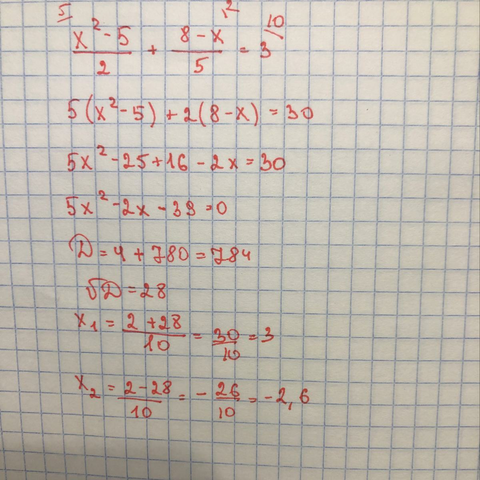 5 2 10
(x² - 5)/2 + (8 - x)/5 = 3
5(x² - 5) + 2(8 - x) = 30
5x² - 25 + 16 - 2x = 30
5x² - 2x - 39 = 0
D = 4 + 780 = 784
√D = 28
x₁ = (2 + 28)/10 = 30/10 = 3
x₂ = (2 - 28)/10 = - 26/10 = -2,6